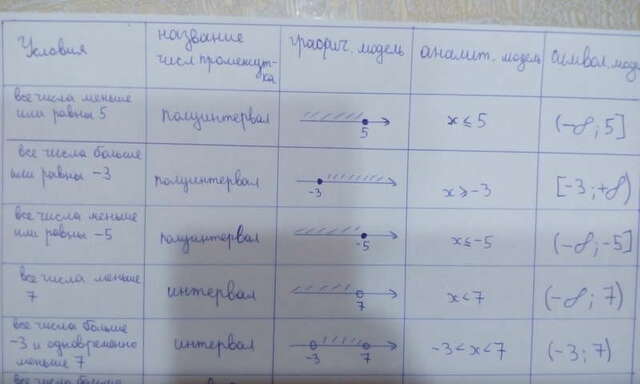 Условия
название
числ промежут-
ка
графич. модель
аналит. модель
символ. мод
все числа меньше
или равны 5
полуинтервал
5
x ≤ 5
(-∞; 5]
все числа больше
или равны -3
полуинтервал
-3
x ≥ -3
[-3; +∞)
все числа меньше
или равны -5
полуинтервал
-5
x ≤ -5
(-∞; -5]
все числа меньше
7
интервал
7
x < 7
(-∞; 7)
все числа больше
-3 и одновременно
меньше 7
интервал
-3 7
-3 < x < 7
(-3; 7)
все числа больше